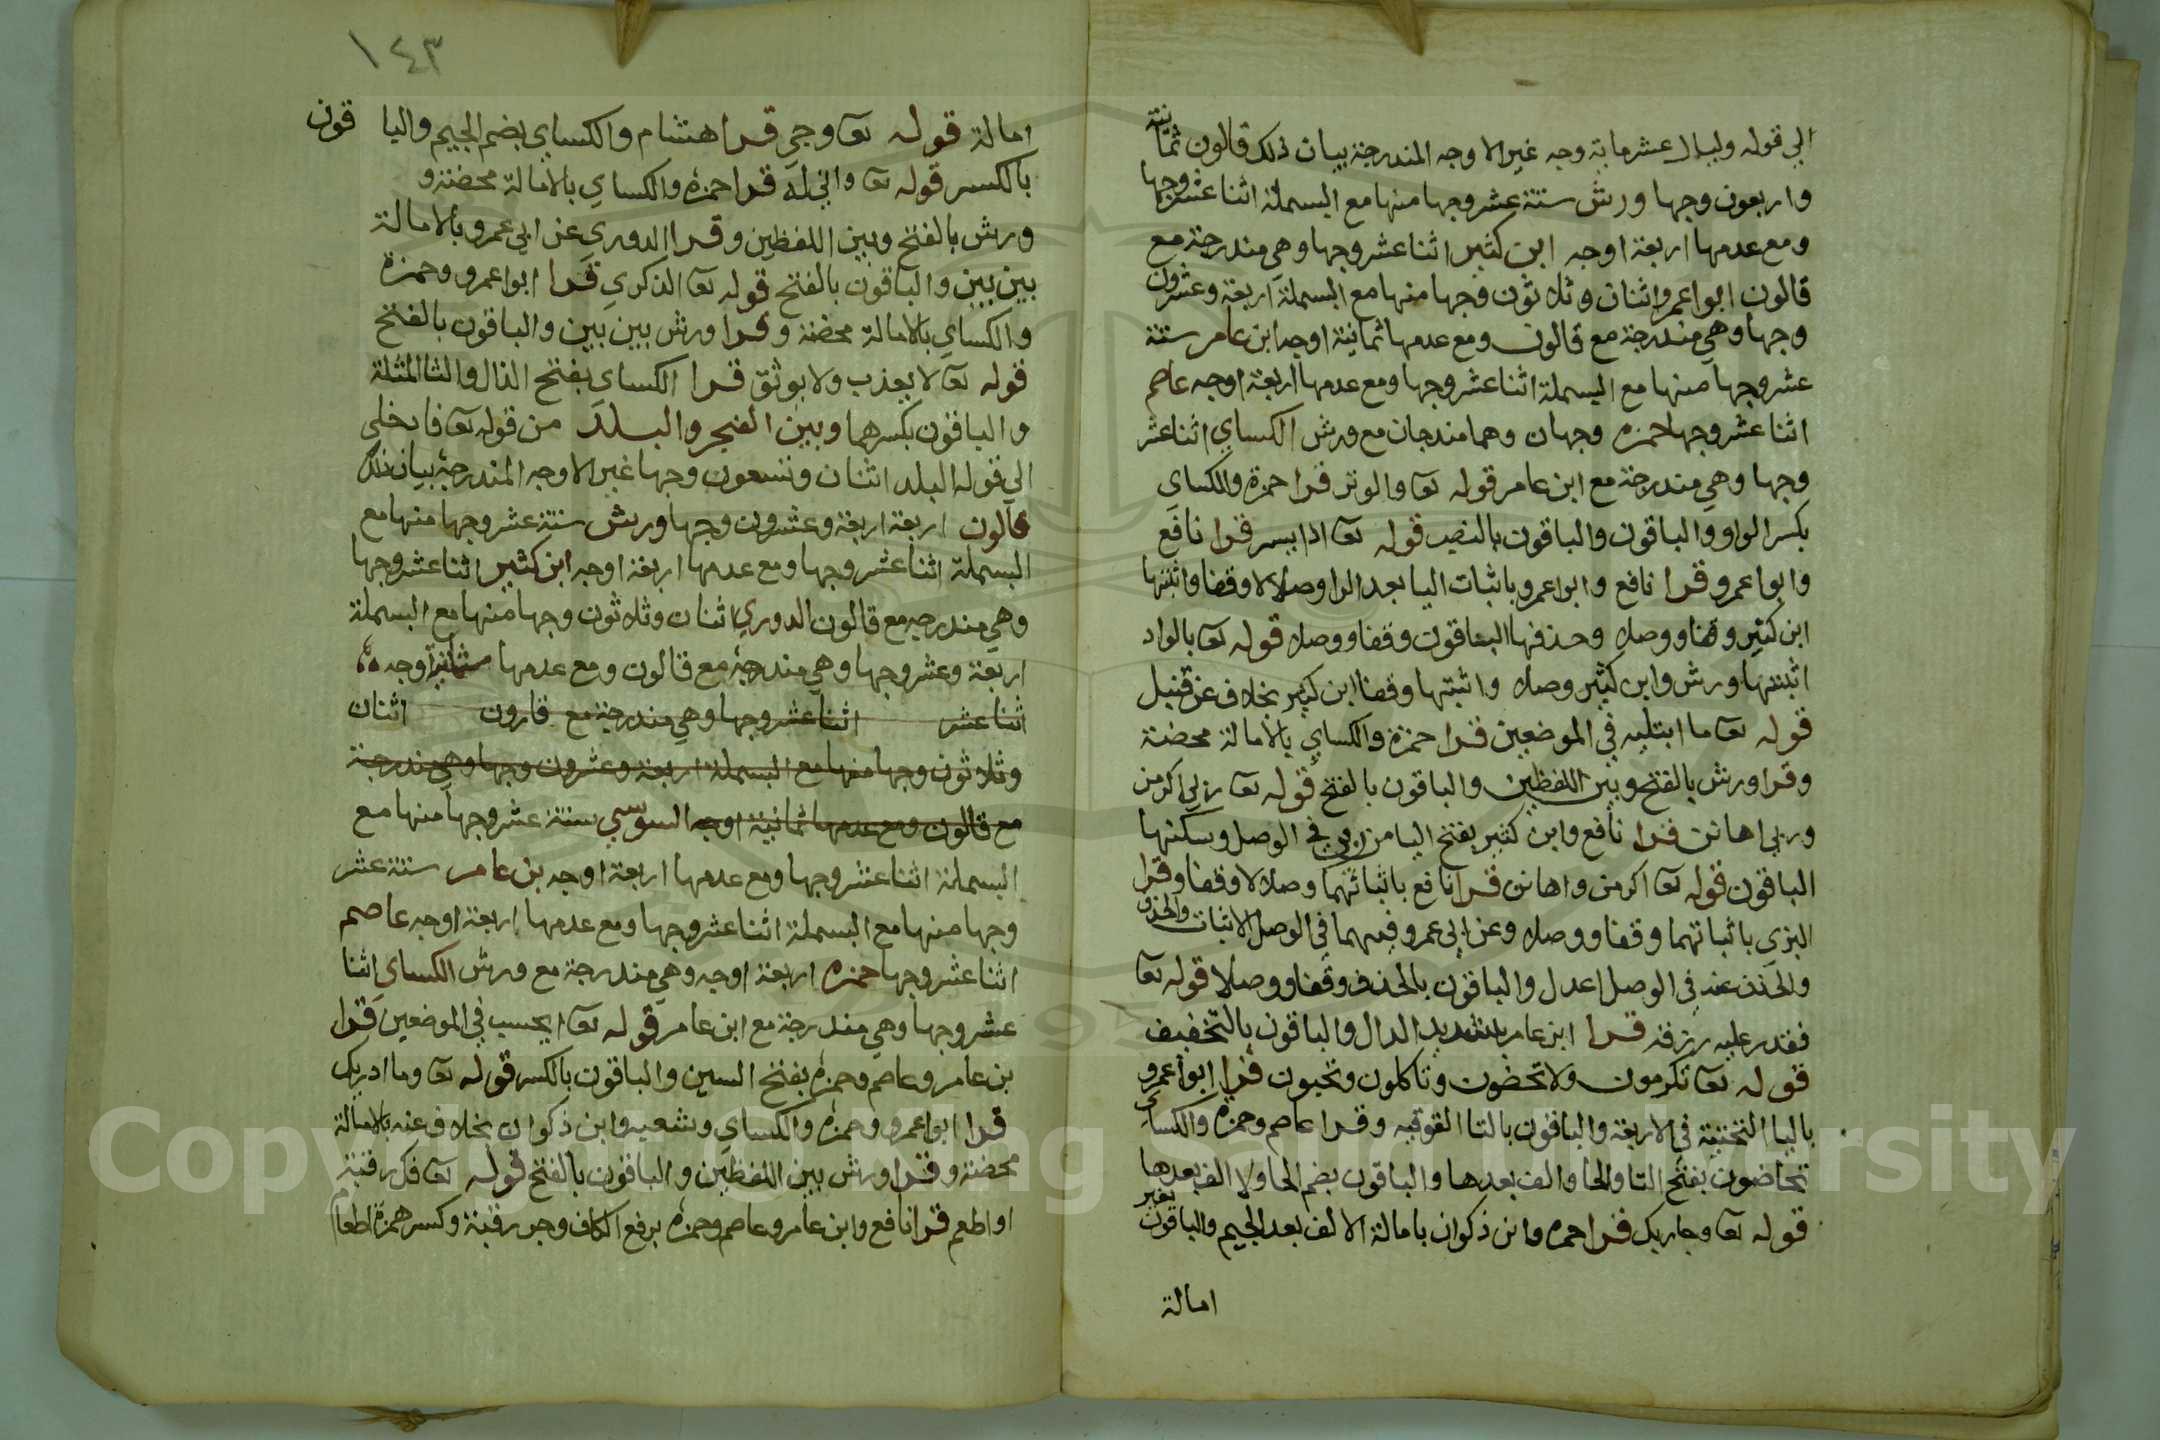 الي قوله وليال عشر ماية وجه غير الاوجه المندرجة بيان ذلك قالون ثمانية
واربعون وجها ورش ستة عشر وجها منها مع البسملة اثنا عشر وجها
ومع عدمها اربعة اوجه ابن كثير اثنا عشر وجها وهي مندرجة مع
قالون ابوا عمرو اثنان وثلاثون وجها منها مع البسملة اربعة وعشرون
وجها وهي مندرجة مع قالون ومع عدمها ثمانية اوجه ابن عامر ستة
عشر وجها منها مع البسملة اثنا عشر وجها ومع عدمها اربعة اوجه عاصم
اثنا عشر وجها حمزه وجهان وهما مندجان مع ورش الكساي اثنا عشر
وجها وهي مندرجة مع ابن عامر قوله تعا والوتر قرا حمزة والكساي
بكسر الواو والباقون والباقون بالنصب قوله تعا اذا يسر قرا نافع
وابوا عمرو قرا نافع وابوا عمرو باثبات اليا بعد الرا وصلا لا وقفا واثبتها
ابن كثير وقفا ووصلا وحذفها الباقون وقفا ووصلا قوله تعا بالواد
اثبتها ورش وابن كثير وصلا واثبتها وقفا ابن كثير بخلاف عن قنبل
قوله تعا ما ابتليه في الموضعين قرا حمزة والكساي بالامالة محضة
وقرا ورش بالفتح وبين اللفظين والباقون بالفتح قوله تعا ربي اكرمن
وربي اهانن قرا نافع وابن كثير بفتح اليا من ربي في الوصل وسكنها
الباقون قوله تعا اكرمن واهانن قرا نافع باثباتهما وصلا لا وقفا وقرا
البزي باثباتهما وقفا ووصلا وعن ابي عمرو فيهما في الوصل الاثبات والحذف
والحذف عنه في الوصل اعدل والباقون بالحذف وقفا ووصلا قوله تعا
فقدر عليه رزقه قرا ابن عامر بتشديد الدال والباقون بالتخفيف
قوله تعا تكرمون ولا تحضون وتاكلون وتحبون قرا ابوا عمرو
باليا التحتية في الاربعة والباقون بالتا الفوقيه وقرا عاصم وحمزة والكساي
تحاضون بفتح التا والحا والف بعدها والباقون بضم الحا ولا الف بعدها
قوله تعا وجاريك قرا حمزه وابن ذكوان بامالة الالف بعد الجيم والباقون بغير
امالة
١٤٣
امالة قوله تعا وجي قرا هشام والكساي بضم الجيم واليا قون
بالكسر قوله تعا واني له قرا حمزة والكساي بالامالة محضة و
ورش بالفتح وبين اللفظين وقرا الدوري عن ابي عمرو بالامالة
بين بين والباقون بالفتح قوله تعا الذكري قرا ابوا عمرو وحمزة
والكساي بالامالة محضة وقرا ورش بين بين والباقون بالفتح
قوله تعا لا يعذب ولا يوثق قرا الكساي بفتح الذال والثا المثلثة
والباقون بكسرهما وبين الفجر والبلد من قوله تعا فادخلي
الي قوله البلد اثنان وتسعون وجها غير الاوجه المندرجة بيان ذلك
قالون اربعة اربعة وعشرون وجها ورش ستة عشر وجها منها مع
البسملة اثنا عشر وجها ومع عدمها اربعة اوجه ابن كثير اثنا عشر وجها
وهي مندرجه مع قالون الدوري اثنان وثلاثون وجها منها مع البسملة
اربعة وعشر وجها وهي مندرجة مع قالون ومع عدمها ثمانية اوجه
اثنا عشر اثنا عشر وجها وهي مندرجة مع قارون اثنان
وثلاثون وجها منها مع البسملة اربعة وعشرون وجها وهي مندرجة
مع قالون ومع عدمها ثمانية اوجه السوسي ستة عشر وجها منها مع
البسملة اثنا عشر وجها ومع عدمها اربعة اوجه بن عامر ستة عشر
وجها منها مع البسملة اثنا عشر وجها ومع عدمها اربعة اوجه عاصم
اثنا عشر وجها حمزه اربعة اوجه وهي مندرجة مع ورش الكساي اثنا
عشر وجها وهي مندرجة مع ابن عامر قوله تعا ايحسب في الموضعين قرا
بن عامر وعاصم وحمزة بفتح السين والباقون بالكسر قوله تعا وما ادريك
قرا ابوا عمرو وحمزه والكساي وشعبه وابن ذكوان بخلاف عنه بالامالة
محضة وقرا ورش بين اللفظين والباقون بالفتح قوله تعا فك رقبة
او اطعم قرا نافع وابن عامر وعاصم وحمزه برفع الكاف وجر رقبة وكسر همزة اطعام
Copyright © King Saud University